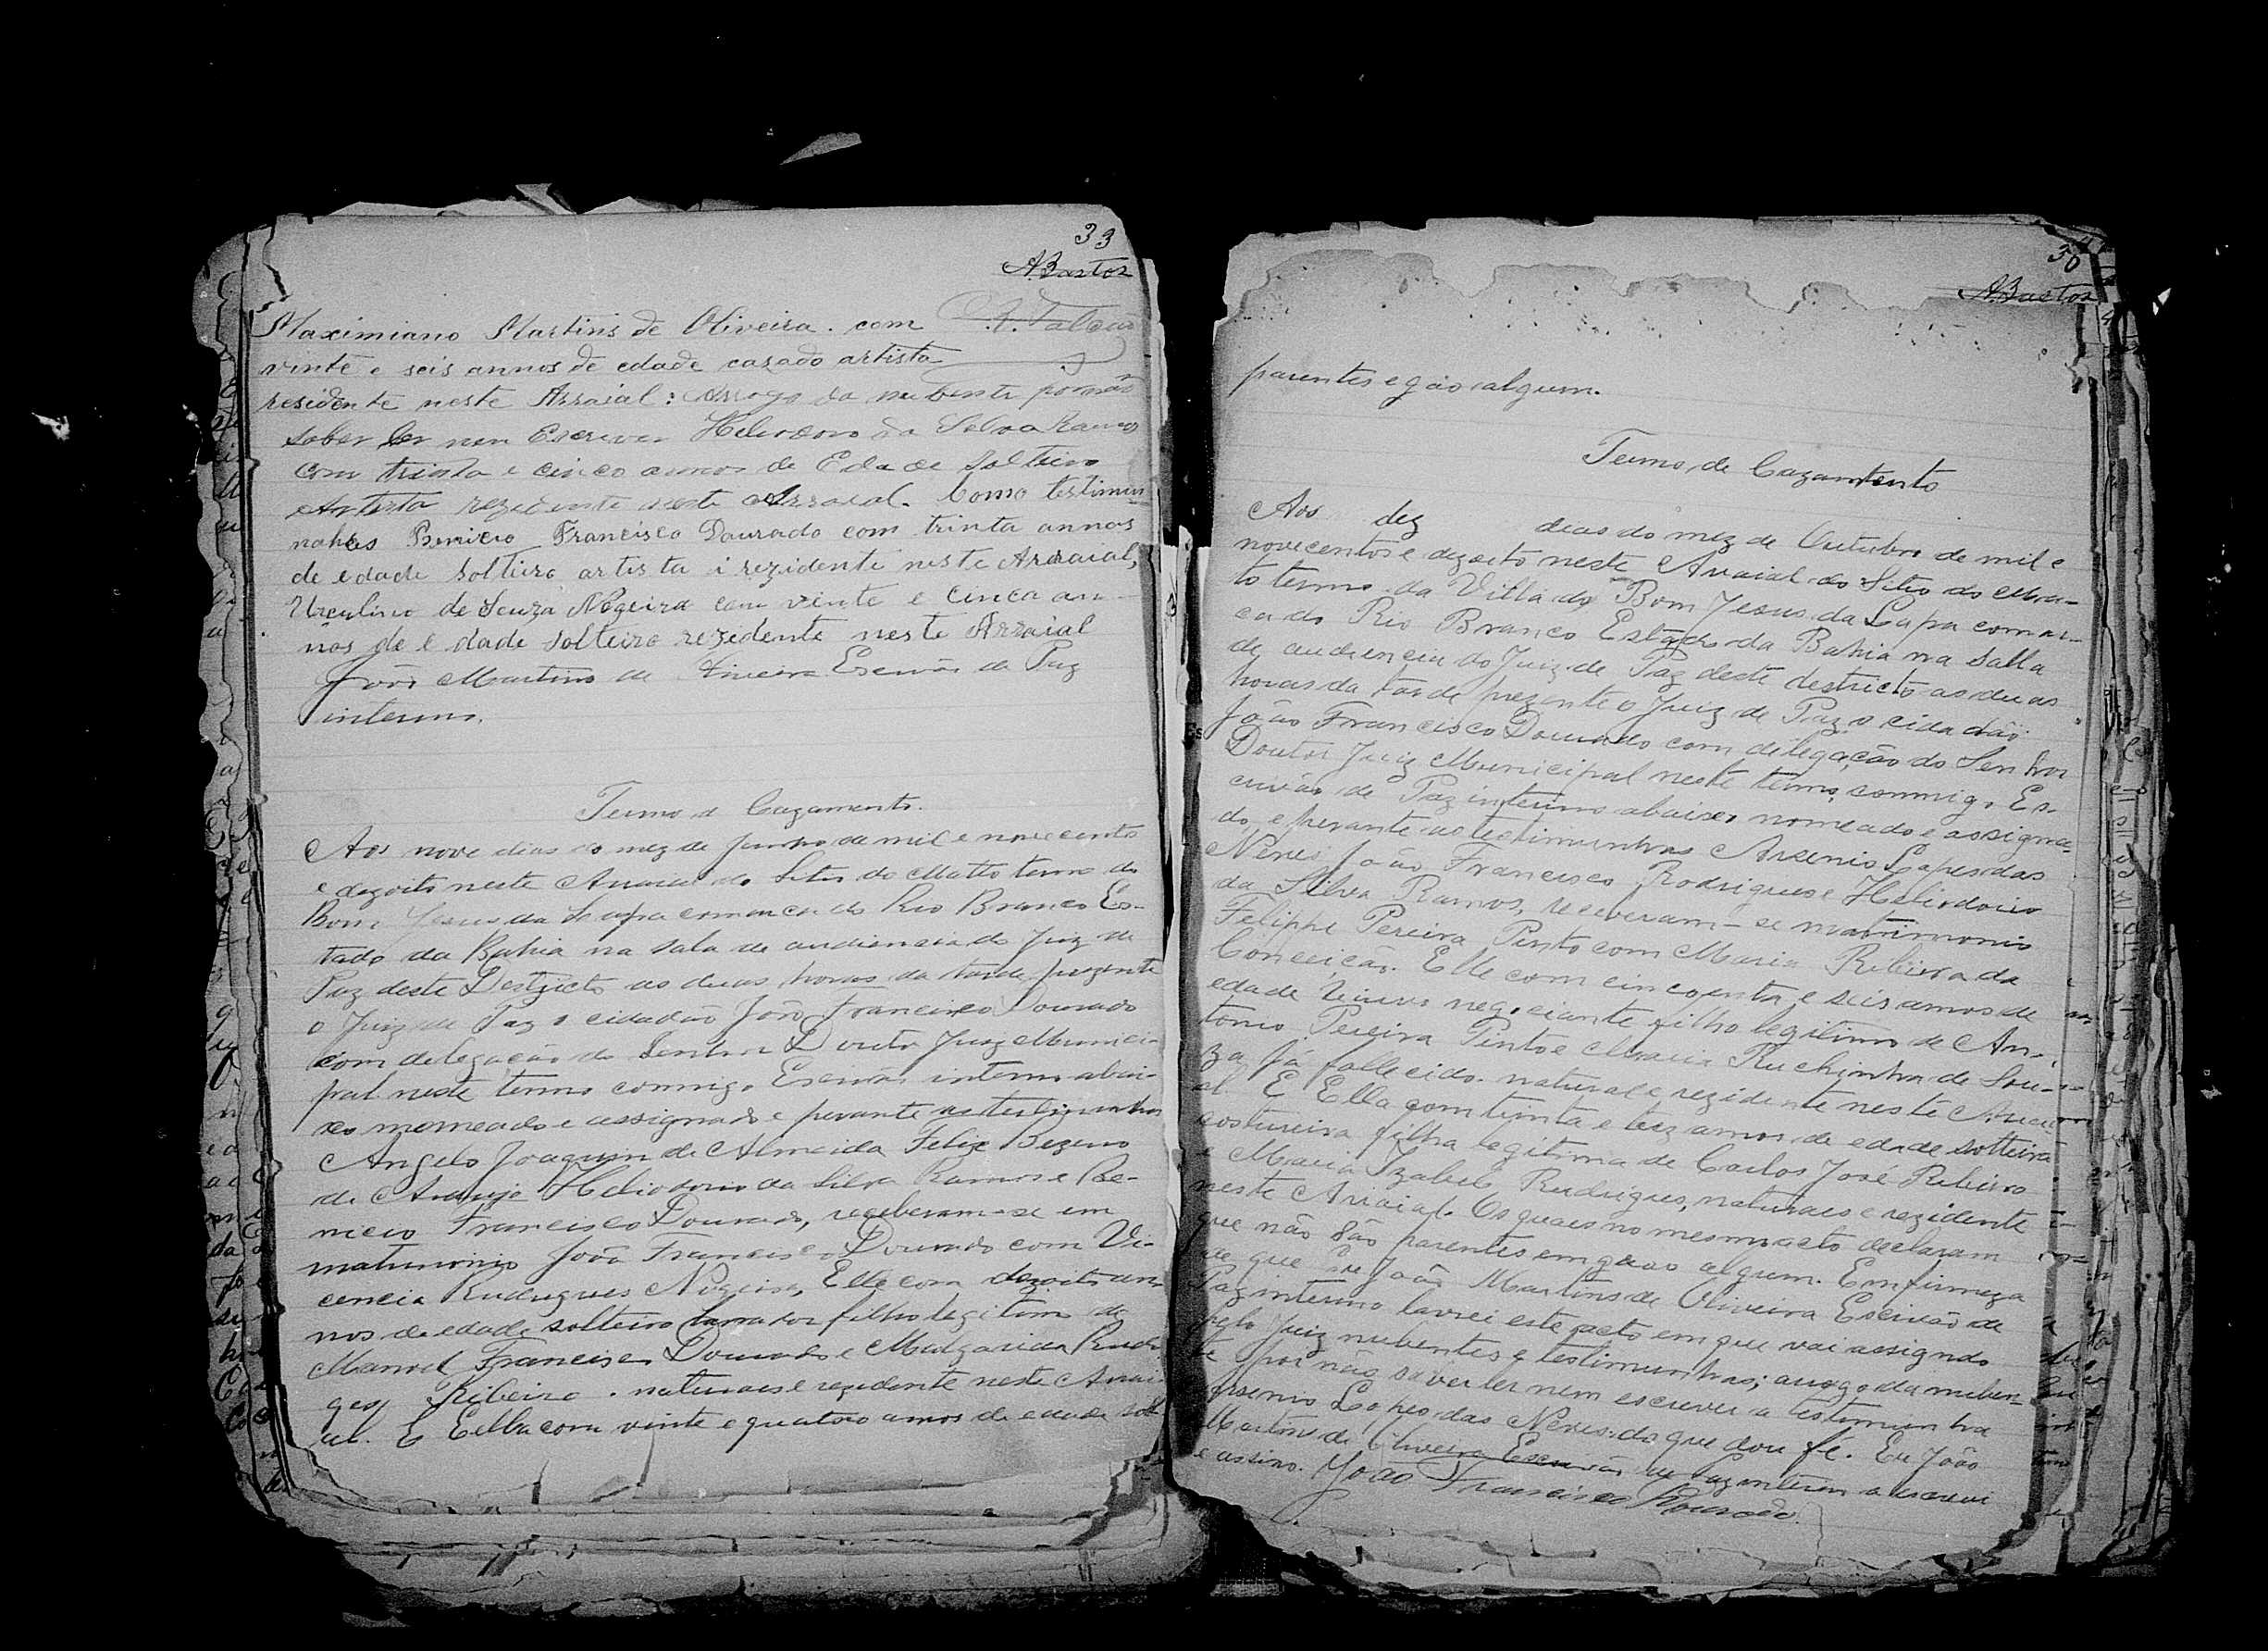 33
ABastos
Maximiano Martins de Oliveira. com
vinte e seis annos de edade cazado artista
residente neste Arraial: Arrogo da nubente por não
saber ler nem Escrever Heliodoro da Silva Ramos
com trinta e cinco annos de Edade Solteiro
Artista rezidente neste Arraial. Como testimu-
nahas Benicio Francisco Dourado com trinta annos
de edade Solteiro artista i rezidente neste Arraial,
Urculino de Souza Nogeira com vinte e cinco an-
nos de edade solteiro rezidente neste Arraial
João Martins de Oliveira Escrivão de Paz
interino.
Termo d Cazamento.
Aos nove dias do mez de Junho de mil e novecento
e dezoito neste Arraial do Sitio do Matto termo do
Bom Jesus da Lapa comarca do Rio Branco Es-
tado da Bahia na sala de audiencia do Juiz de
Paz deste Destricto as duas horas da tarde prezente
o Juiz de Paz o cidadão João Francisco Dourado
com delegação do Senhor Doutor Juiz Munici-
pal neste termo commigo Escrivão interino abai-
xo nomeado e assignado e perante as testimunhas
Angelo Joaquim de Almeida Felix Bezerra
de Araujo Heliodorio da Silva Ramos e Be-
nicio Francisco Dourado, receberam-se em
matrimonio João Francisco Dourado com Vi-
cencia Rudrigues Nogeira, Elle com dezoito an-
nos de edade solteiro lavrador filho legitimo de
Manoel Francisco Dourado e Malgarida Rudri
ges Ribeiro. naturaes e rezidente neste Arrai
al. E Eella com vinte e quatoro annos de edade sol
30
ABastos
parentes e gáo algum.
Termo, de Cazamtento
Aos dez dias do mez de Outubro de mil e
novecentos e dezoito neste Arraial do Sitio do Mat-
to termo da Villa do Bom Jesus da Lapa comar-
ca do Rio Branco Estado da Bahia na Salla
de audiencia do Juiz de Paz deste destricto as duas
horas da tarde prezente o Juiz de Paz o cidadão
João Francisco Dourado com delegação do Senhor
Doutor Juiz Municipal neste termo, commigo Es-
crivão de Paz interino abaixo nomeado e assigna-
do, e perante as testimunhas Arsenio Lopes das
Neves, João Francisco Rodrigues e Heliodorio
da Silva Ramos, receveram-se matrimonio
Felippe Pereira Pinto com Maria Ribeira da
Conceição. Elle com cincoenta e seis annos de
edade Viuvo negociante filho legitimo de An-
tonio Pereira Pinto e Maria Ruchinha de Sou-
za já fallecido. natural e rezidente neste Arrai
al. E Ella com trinta e trez annos de edade solteira
costureira filha legitima de Carlos José Ribeiro
e Maria Izabel Rudrigues, naturaes e rezidente
neste Arraial. Os quaes no mesmo acto declaram
que não são parentes em gráo algum. Em firmeza
de que Eu João Martins de Oliveira Escrivão de
Paz interino lavrei este acto em que vai assignado
pelo Juiz nubentes e testimunhas; arrogo da nuben-
te por não saver ler nem escrever a testimunha
Arsenio Lopes das Neves. do que dou fé. Eu João
Martins de Oliveira Escrivão de Paz interin o escrevi
e assino. João Francisco Dourado.